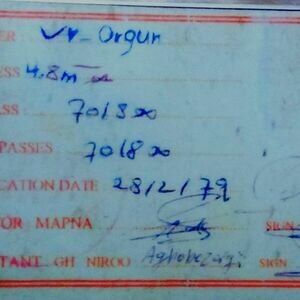 ER : UV-Orgun
ESS 4.8m
SS : 7018
PASSES 7018
CATION DATE 28/2/79
TOR MAPNA SIGN
TANT GH NIROO SIGN